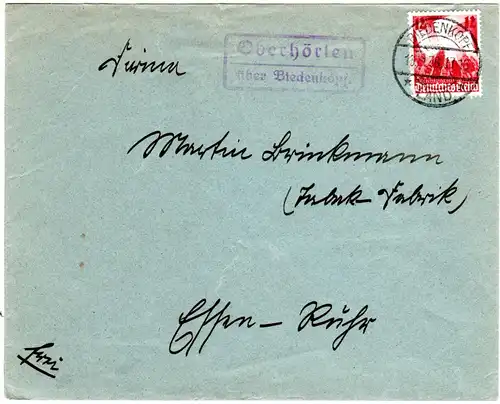 Oberhörlen
über Biedenkopf.
BIEDENKOPF
LAND
12 12
Deutsches Reich
Firma
Martin Brinkmann
(Tabak-Fabrik)
Essen-Ruhr
Frei